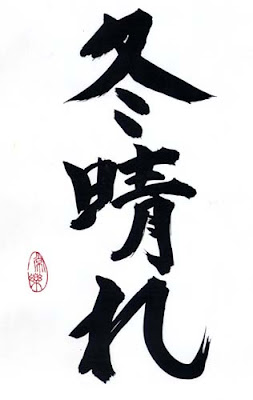 冬晴れ